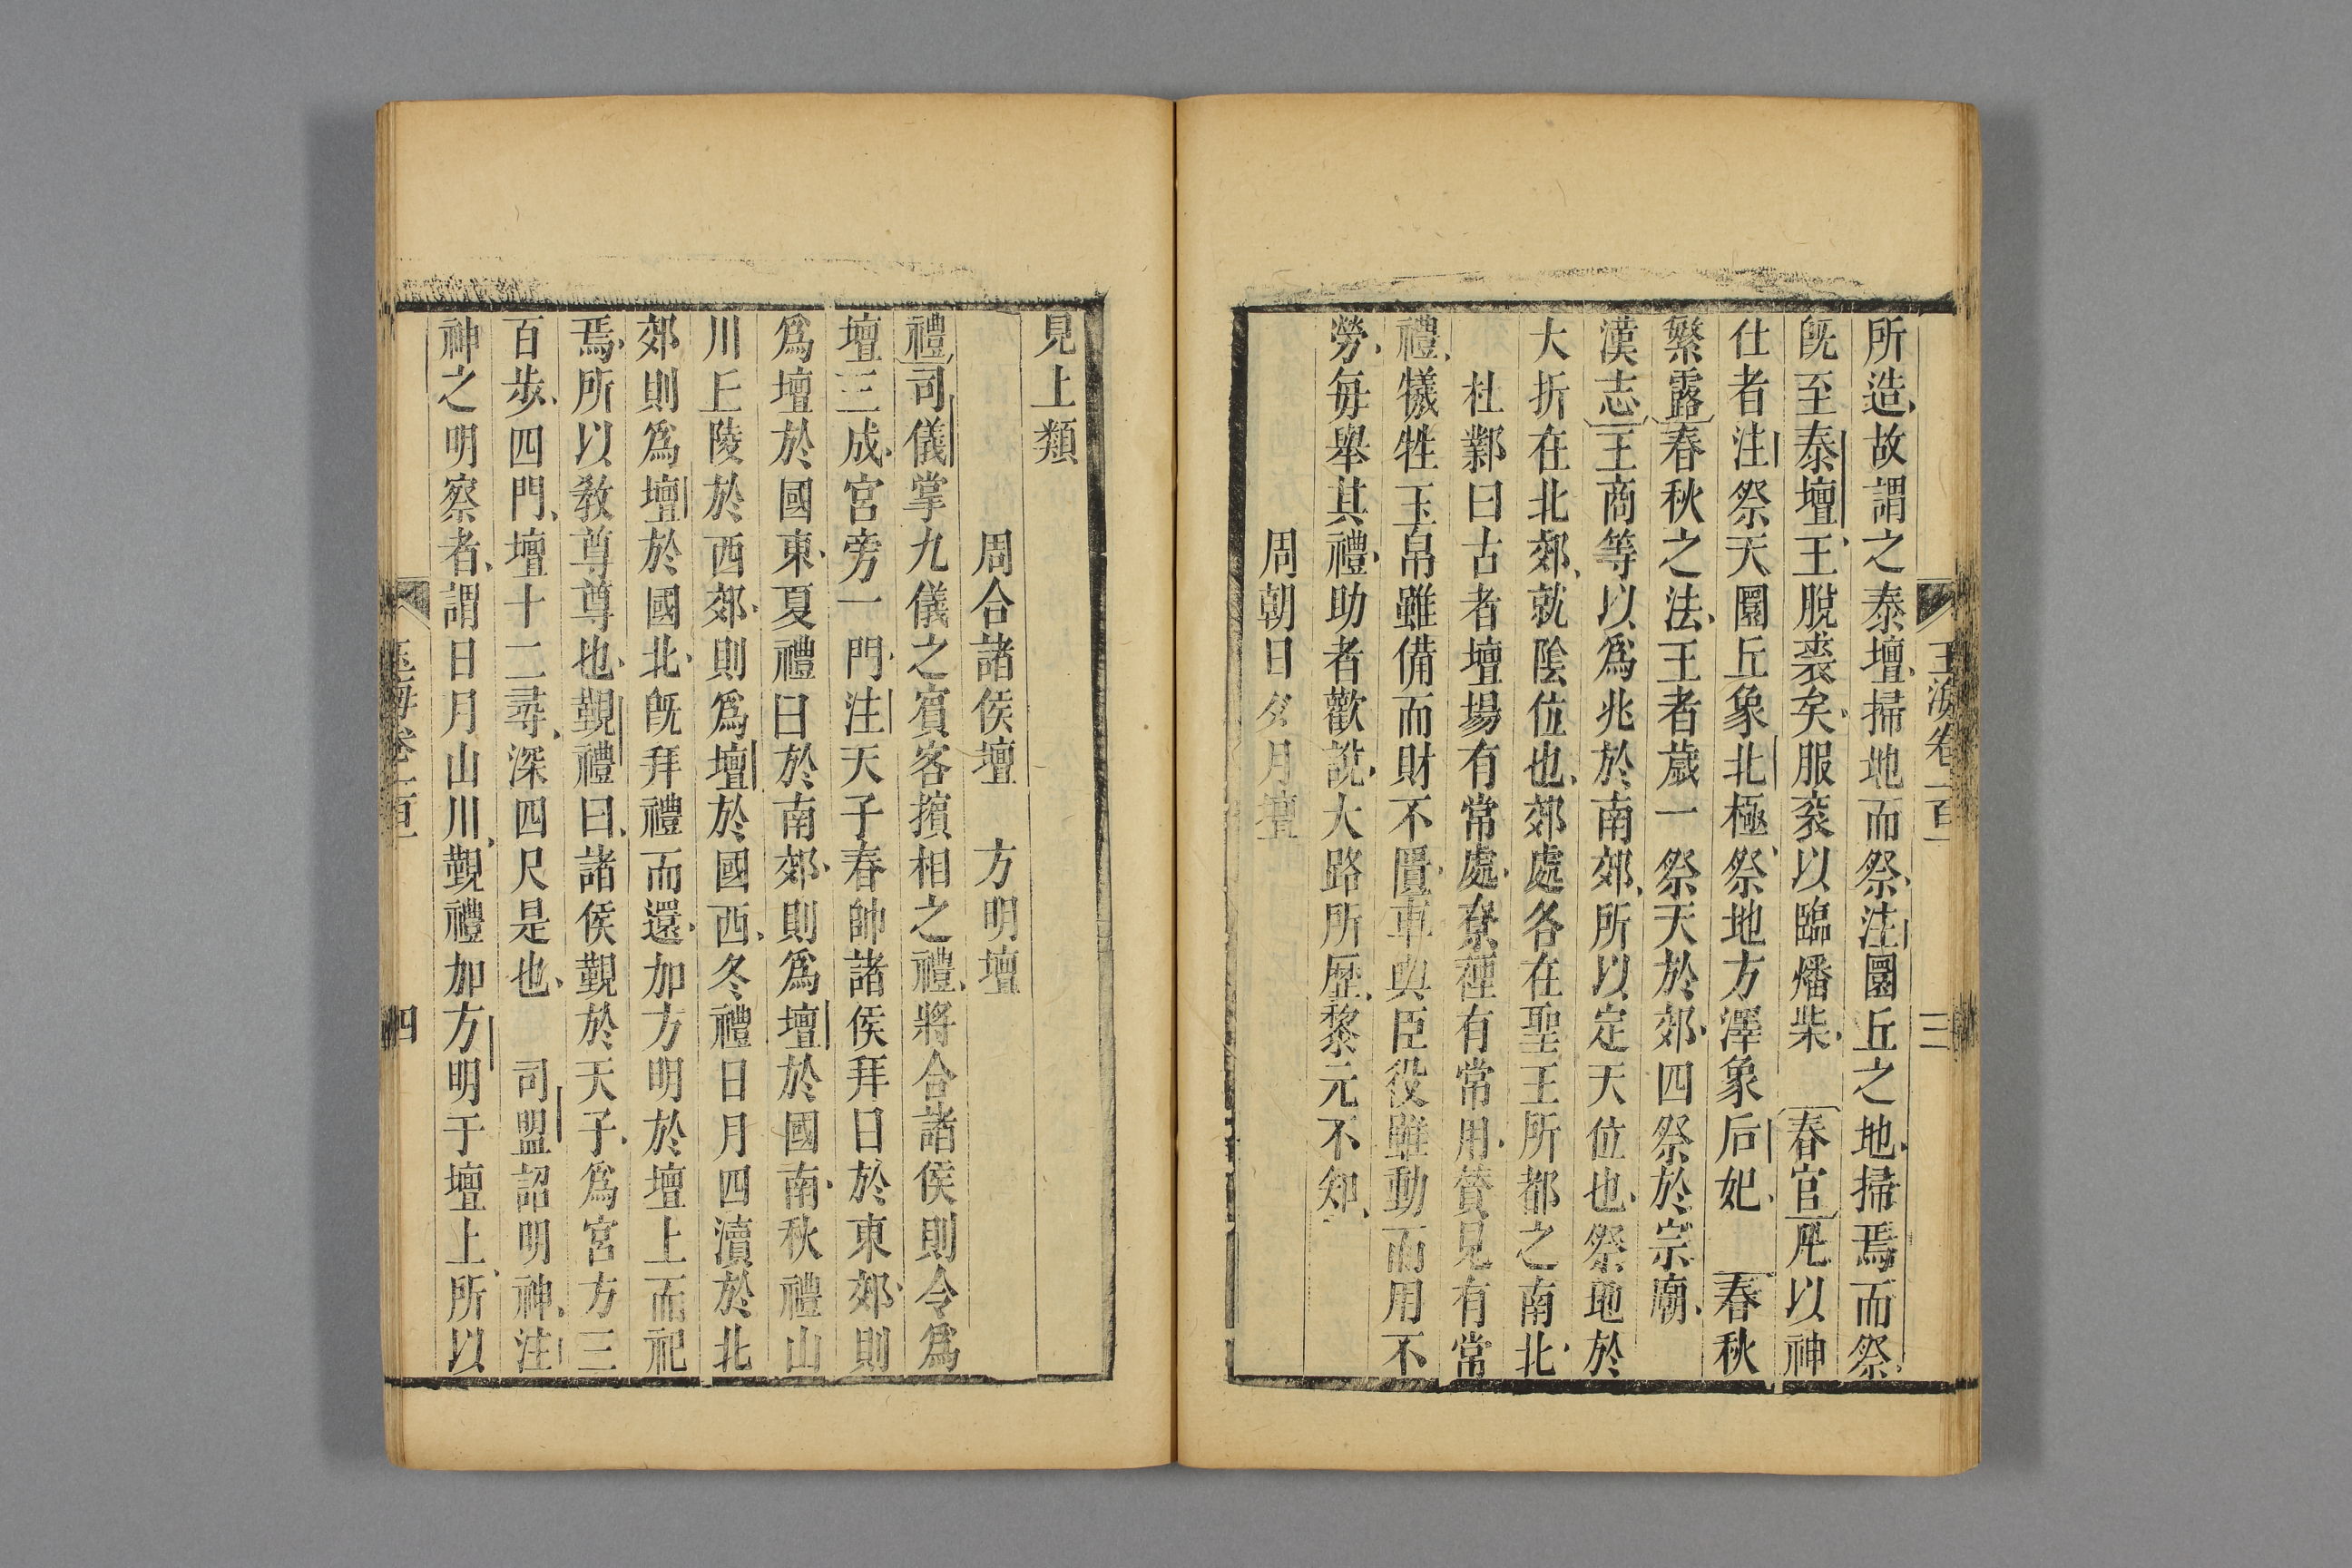 玉海卷一百一 三
所造故謂之泰壇掃地而祭注圜丘之地掃焉而祭
旣至泰壇王脫裘矣服袞以臨燔柴 春官凡以神
仕者注祭天圜丘象北極祭地方澤象后妃 春秋
繁露春秋之法王者歲一祭天於郊四祭於宗廟
漢志王商等以爲兆於南郊所以定天位也祭地於
大折在北郊就陰位也郊處各在聖王所都之南北
杜鄴曰古者壇場有常處尞禋有常用贊見有常
禮犧牲玉帛雖備而財不匱車輿臣役雖動而用不
勞每舉其禮助者歡說大路所歷黎元不知
周朝日夕月壇
見上類
周合諸侯壇 方明壇
禮司儀掌九儀之賓客擯相之禮將合諸侯則令爲
壇三成宮旁一門注天子春帥諸侯拜日於東郊則
爲壇於國東夏禮日於南郊則爲壇於國南秋禮山
川丘陵於西郊則爲壇於國西冬禮日月四瀆於北
郊則爲壇於國北旣拜禮而還加方明於壇上而祀
焉所以敎尊尊也覲禮曰諸侯覲於天子爲宮方三
百步四門壇十二尋深四尺是也 司盟詔明神注
神之明察者謂日月山川覲禮加方明于壇上所以
玉海卷一百一 四